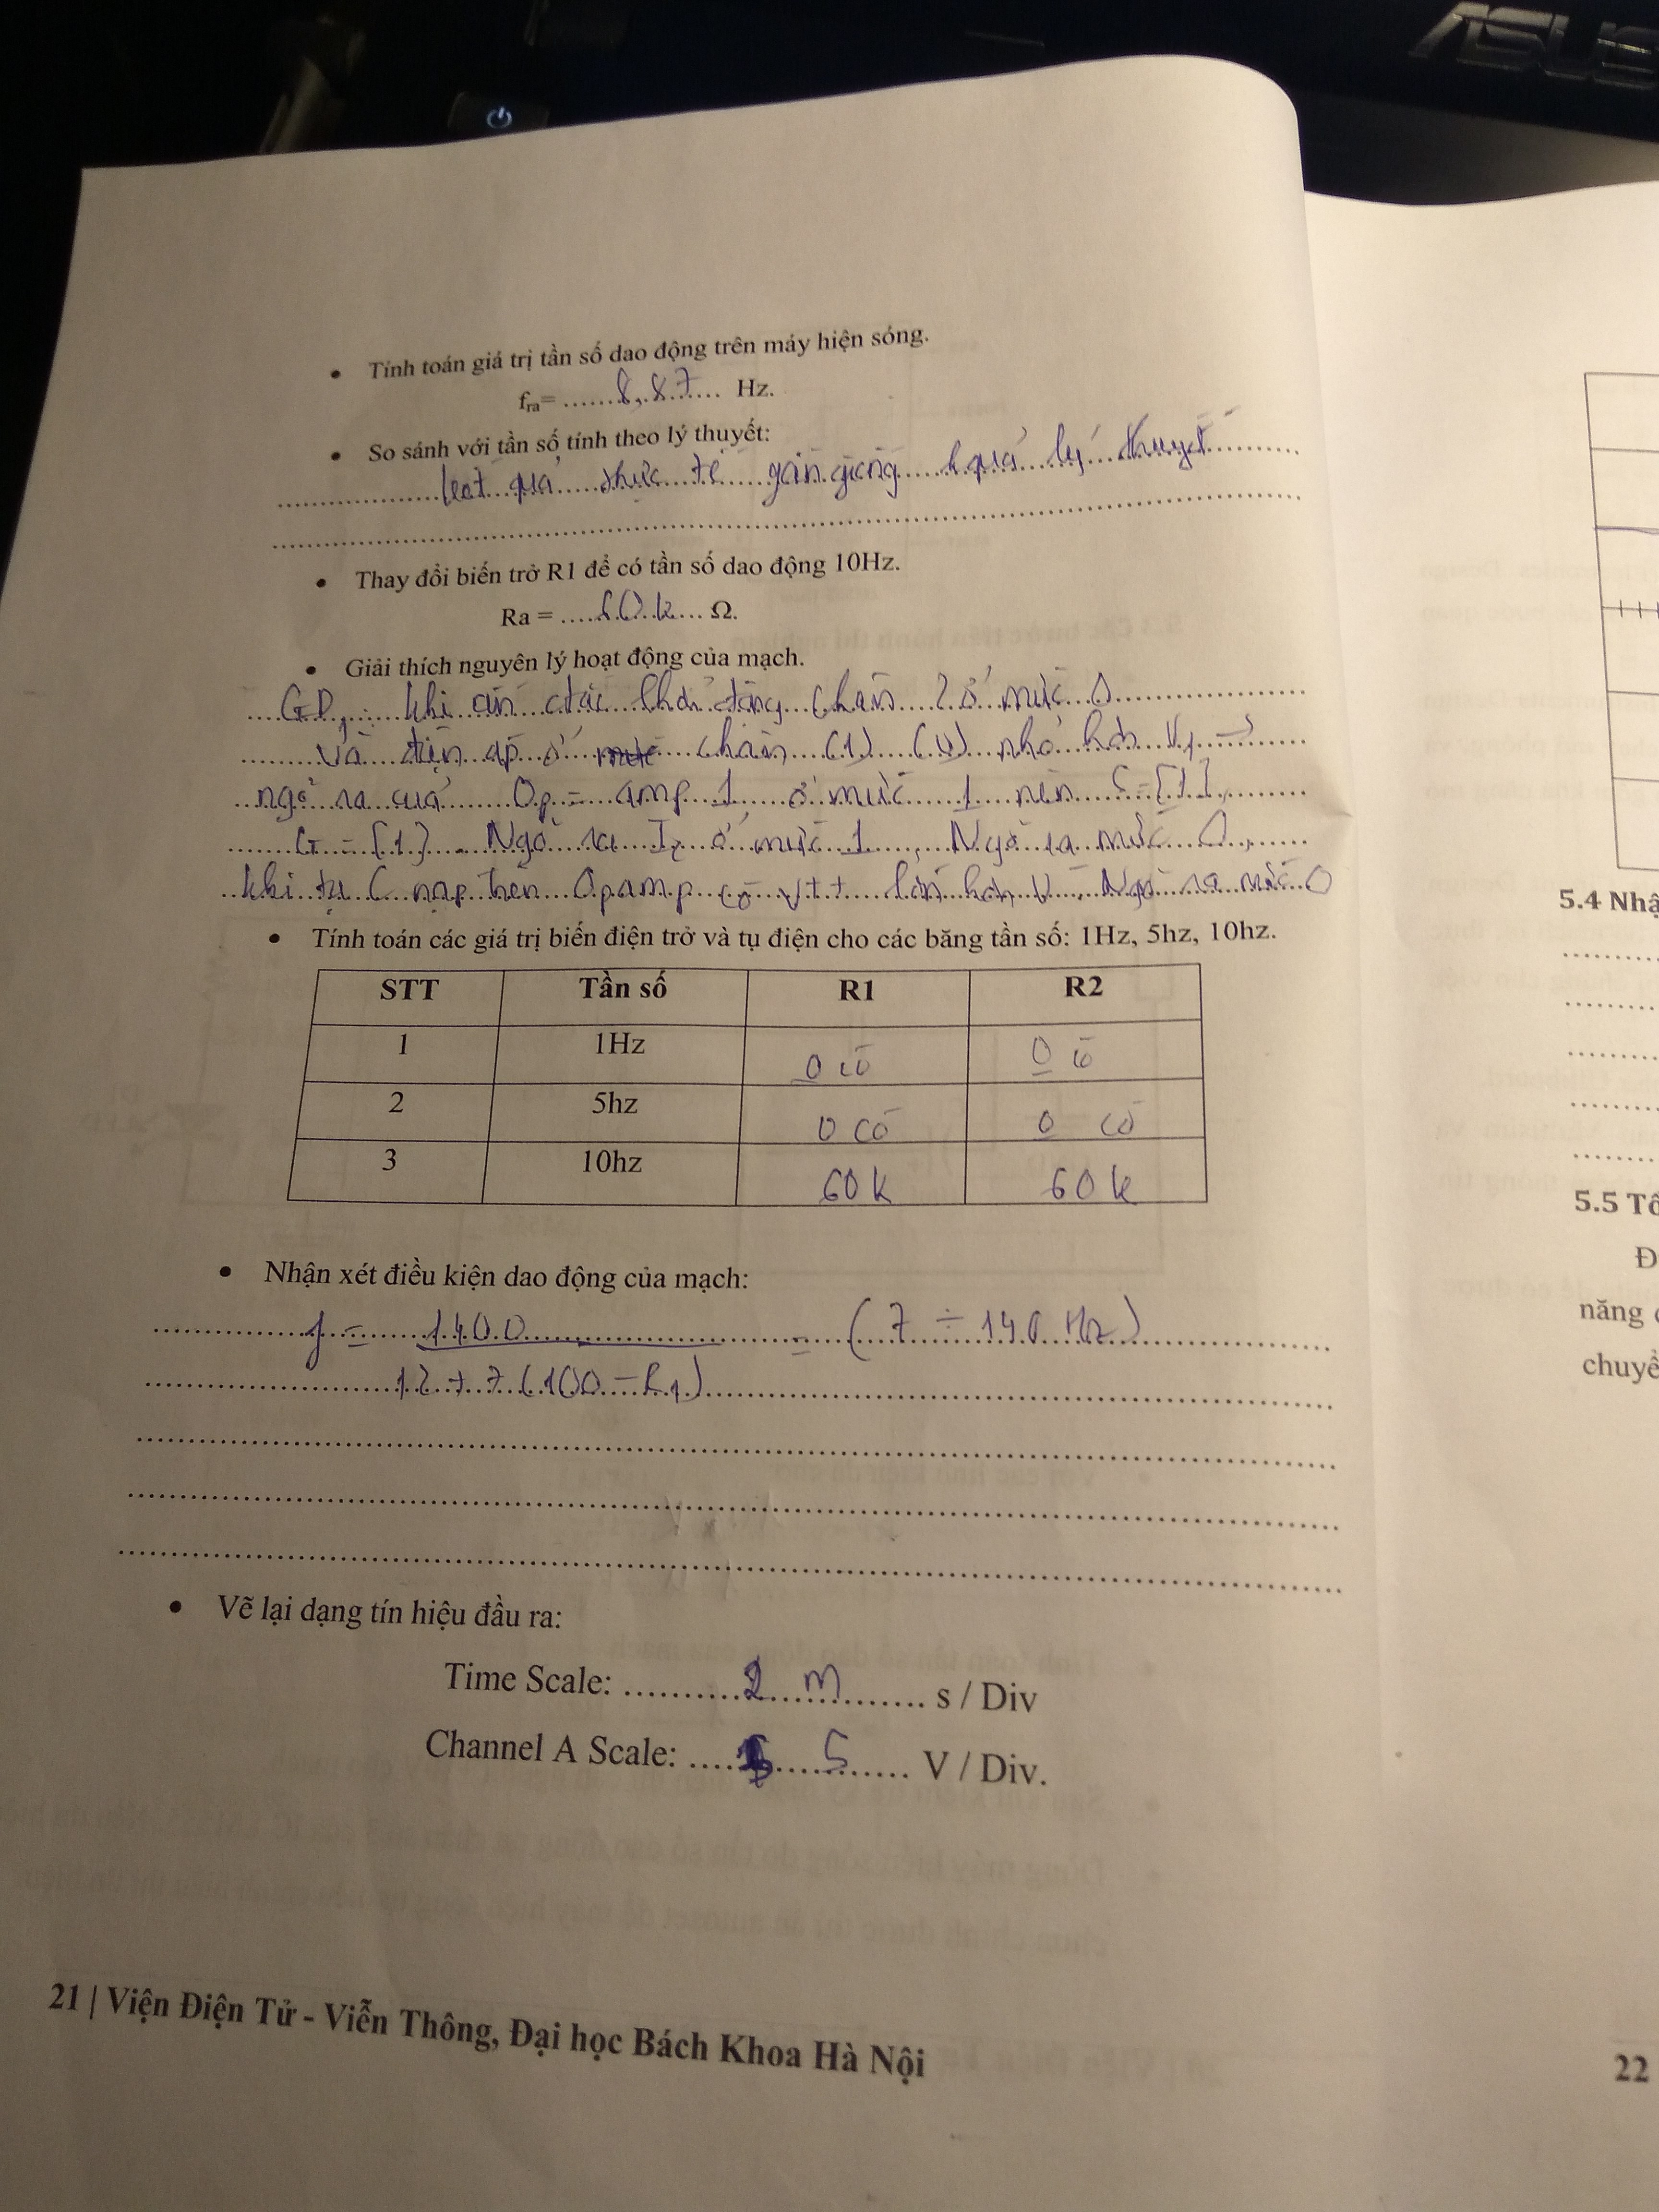 ASUS
• Tính toán giá trị tần số dao động trên máy hiện sóng.
fra= ........8,87...... Hz.
• So sánh với tần số tính theo lý thuyết:
kết quả thực tế gần giống kquả lý thuyết
• Thay đổi biến trở R1 để có tần số dao động 10Hz.
Ra = .....60k.... Ω.
• Giải thích nguyên lý hoạt động của mạch.
khi chân 2 ở mức 0
và điện áp ở chân (1) nhỏ hơn V1 →
ngõ ra của Op-amp 1 ở mức 1 nên S=[1],
Ngõ ra ở mức 1, Ngõ ra mức 0,
khi tụ C nạp Opamp có V++ lớn hơn V-. Ngõ ra mức 0
• Tính toán các giá trị biến điện trở và tụ điện cho các băng tần số: 1Hz, 5hz, 10hz.
STT Tần số R1 R2
1 1Hz 0 có 0 có
2 5hz 0 có 0 có
3 10hz 60k 60k
• Nhận xét điều kiện dao động của mạch:
f = 1400 = (7 ÷ 140 Hz)
12 + 7 (100 - R1)
• Vẽ lại dạng tín hiệu đầu ra:
Time Scale: ..........2 m.......... s / Div
Channel A Scale: .... 5 ....... V / Div.
21 | Viện Điện Tử - Viễn Thông, Đại học Bách Khoa Hà Nội
5.4 Nhậ
5.5 Tổ
Đ
năng
chuyể
22